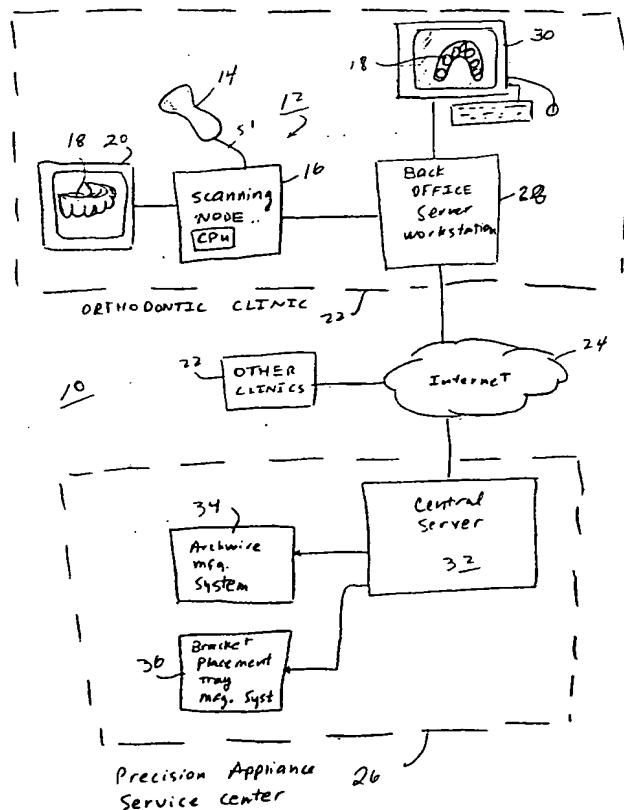 30
18
14
12
51
16
18
20
Scanning
NODE..
CPU
Back
OFFICE
Server
Workstation
28
ORTHODONTIC CLINIC
22
24
22
OTHER
CLINICS
Internet
10
Central
Server
32
34
Archwire
mfg.
System
36
Bracket
Placement
Tray
mfg. Syst
Precision Appliance
Service center
26